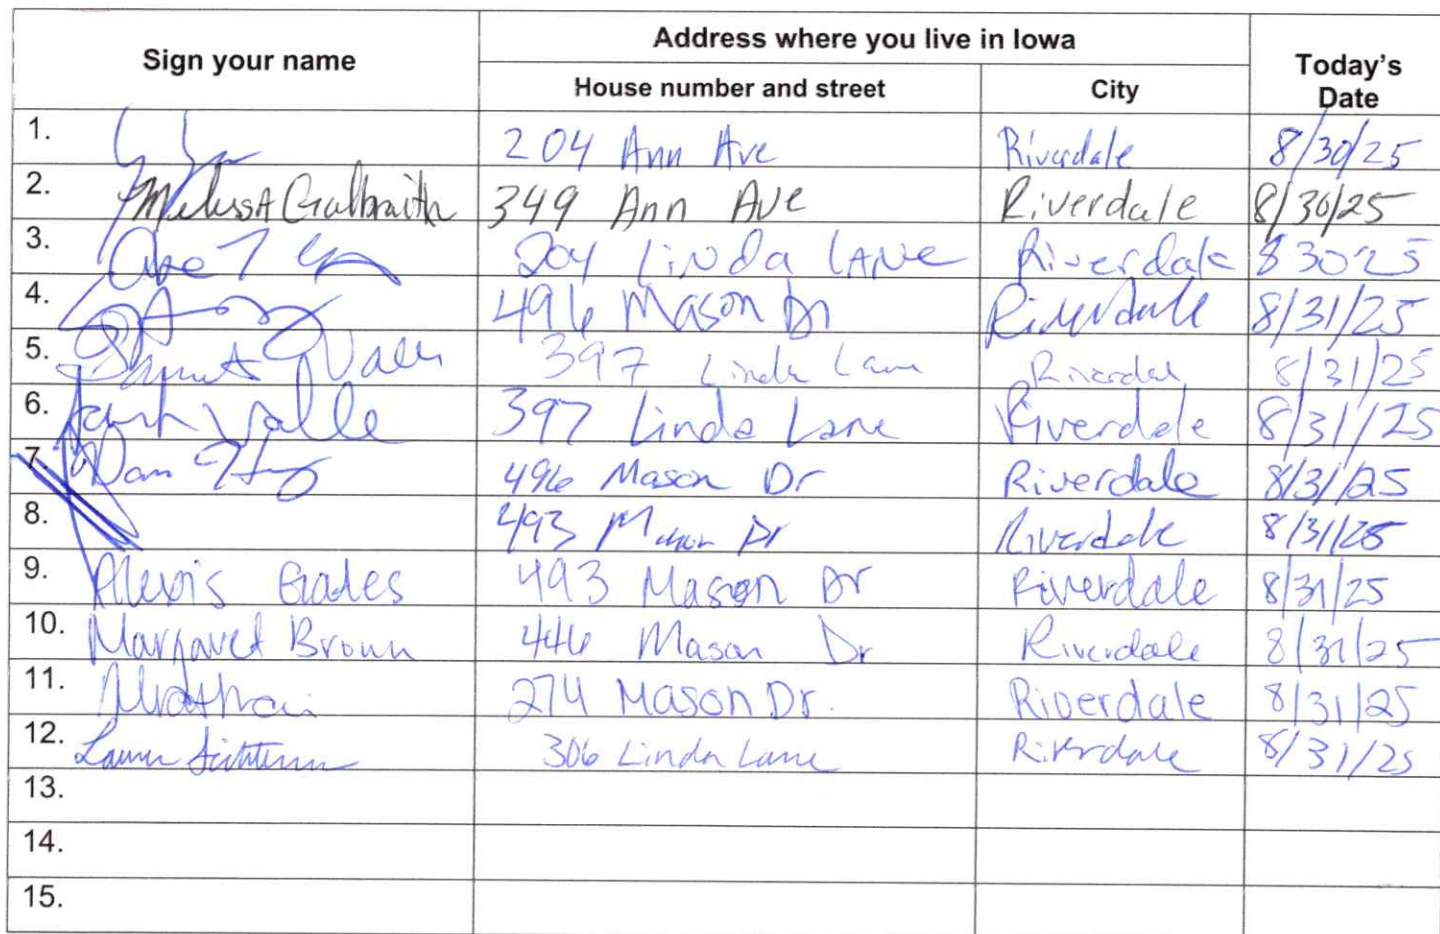 Sign your name Address where you live in Iowa Today's Date
House number and street City
1. 204 Ann Ave Riverdale 8/30/25
2. Melissa Galbraith 349 Ann Ave Riverdale 8/30/25
3. 204 Linda Lane Riverdale 83025
4. 496 Mason Dr Riverdale 8/31/25
5. 397 Linda Lane Riverdale 8/31/25
6. Valle 397 Linda Lane Riverdale 8/31/25
7. Dan 496 Mason Dr Riverdale 8/31/25
8. 493 Mason Dr Riverdale 8/31/25
9. Alexis Eades 493 Mason Dr Riverdale 8/31/25
10. Margaret Brown 446 Mason Dr Riverdale 8/31/25
11. 274 Mason Dr. Riverdale 8/31/25
12. 306 Linda Lane Riverdale 8/31/25
13.
14.
15.